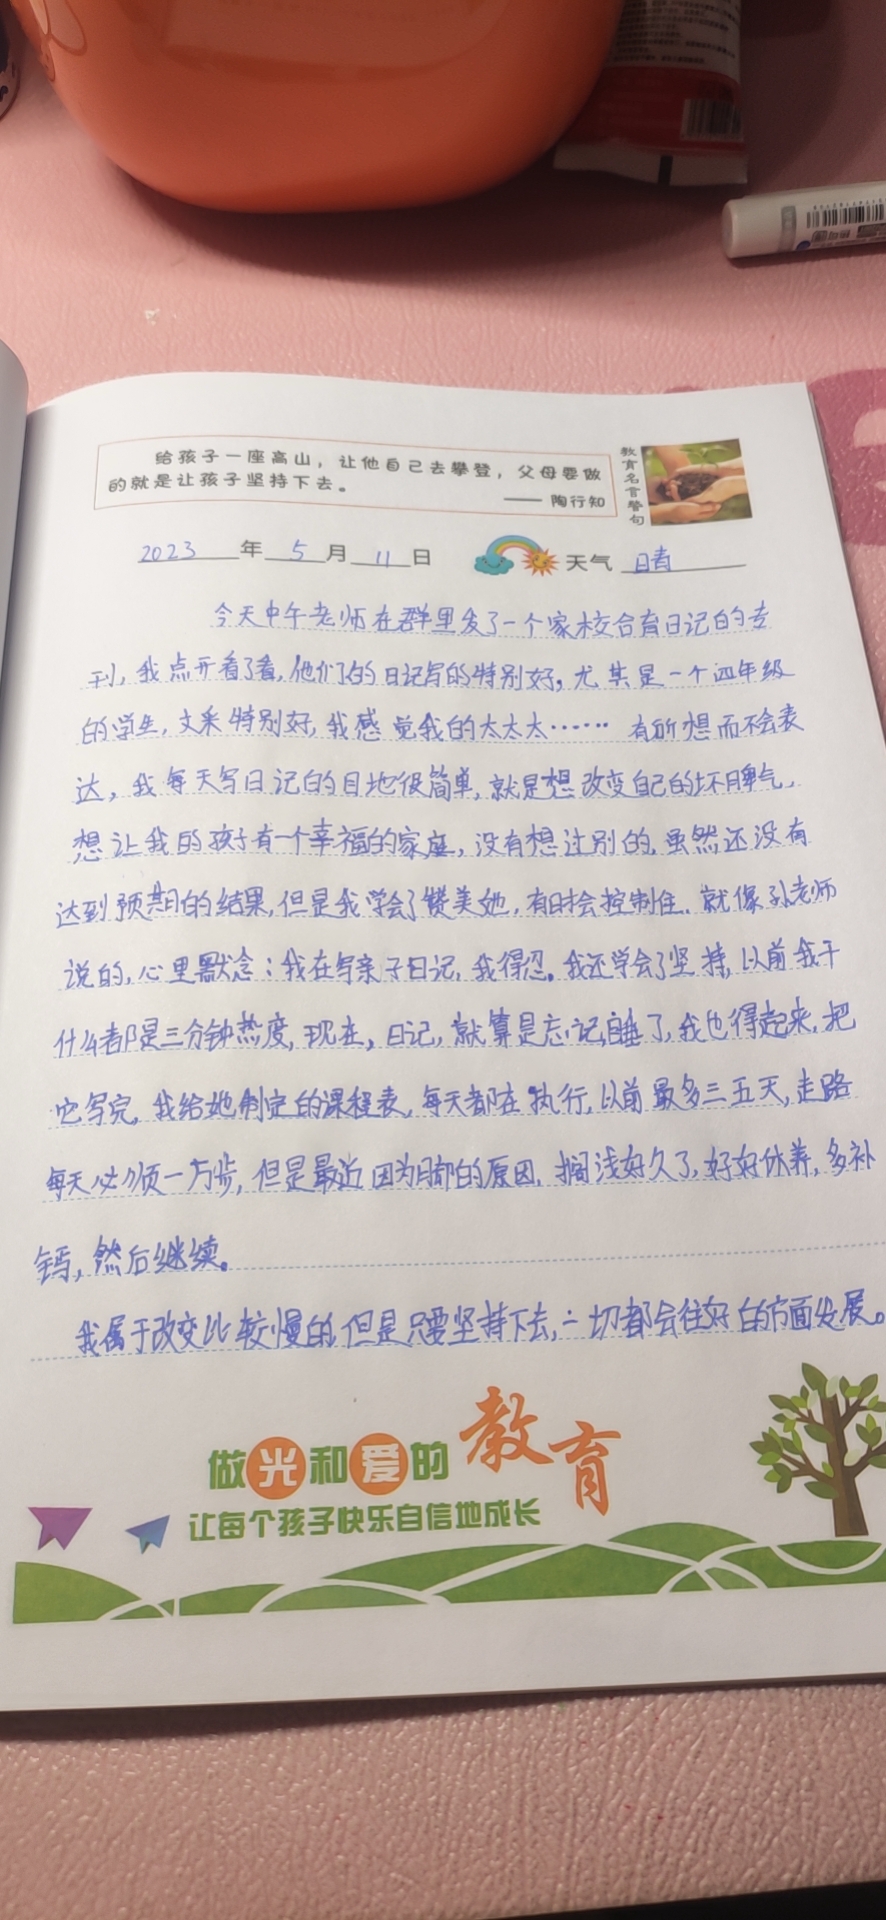 给孩子一座高山，让他自己去攀登，父母要做
的就是让孩子坚持下去。
—— 陶行知
教育名言警句
2023年5月11日 天气 晴
今天中午老师在群里发了一个家校合育日记的专
刊，我点开看了看，他们的日记写的特别好。尤其是一个四年级
的学生，文采特别好，我感觉我的太太太…… 有所想而不会表
达，我每天写日记的目地很简单，就是想改变自己的坏脾气，
想让我的孩子有一个幸福的家庭，没有想过别的，虽然还没有
达到预期的结果，但是我学会了赞美她，有时会控制住，就像孙老师
说的，心里默念：我在写亲子日记，我得忍。我还学会了坚持，以前我干
什么都是三分钟热度，现在，日记，就算是忘记睡了，我也得起来，把
它写完，我给她制定的课程表，每天都在执行，以前最多三五天，走路
每天必须一万步，但是最近因为脚的原因，搁浅好久了，好好休养，多补
钙，然后继续。
我属于改变比较慢的，但是只要坚持下去，一切都会往好的方面发展。
做光和爱的教育
让每个孩子快乐自信地成长